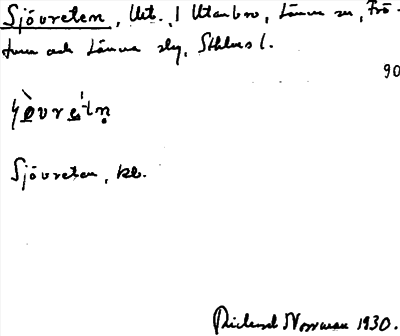 Sjövreten, Utt., 1 Utanbro, Länna sn, Frö-
tuna och Länna slg, Sthlms l.
90
Sjövreten, bb.
Rickard Norrman 1930.